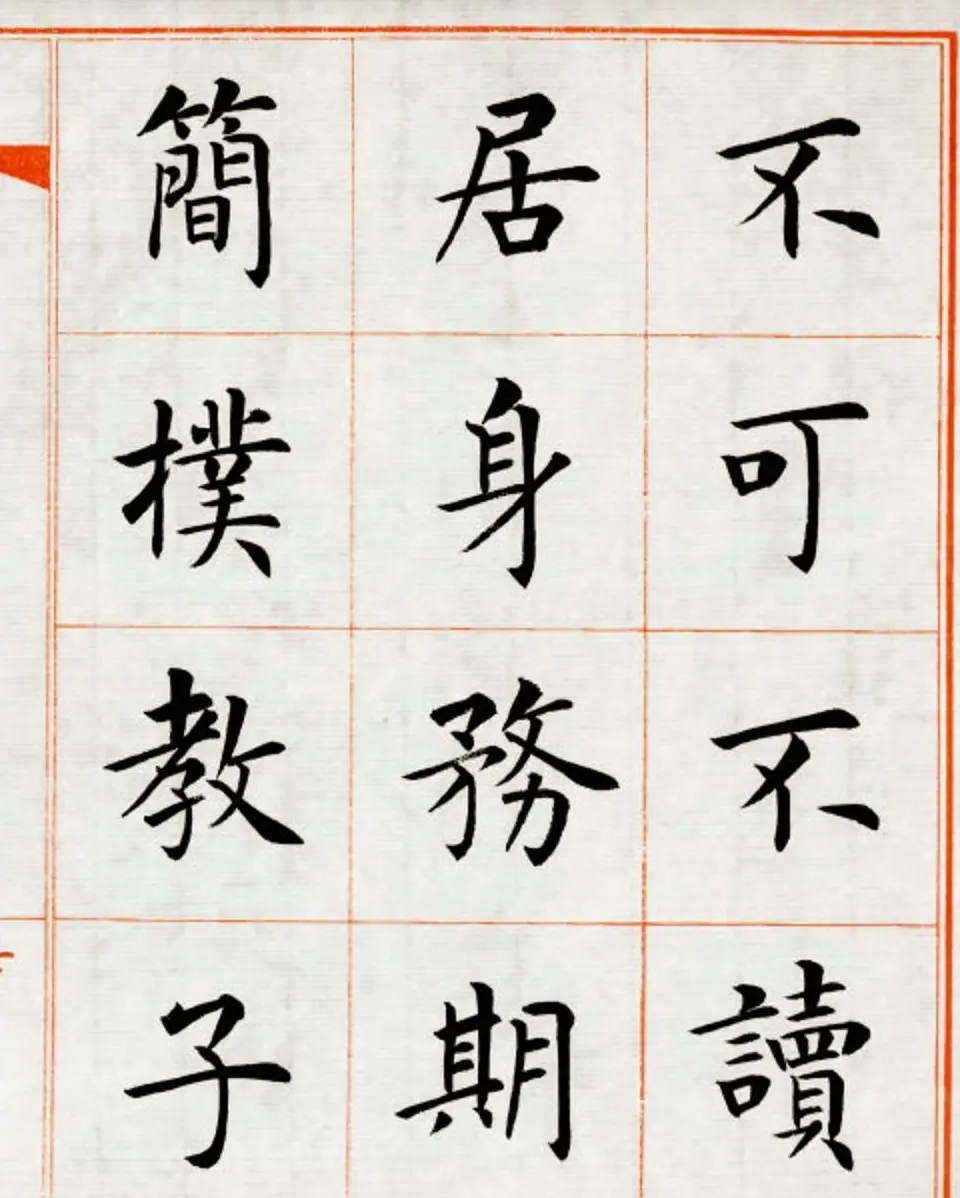 不可不讀
居身務期
簡樸教子